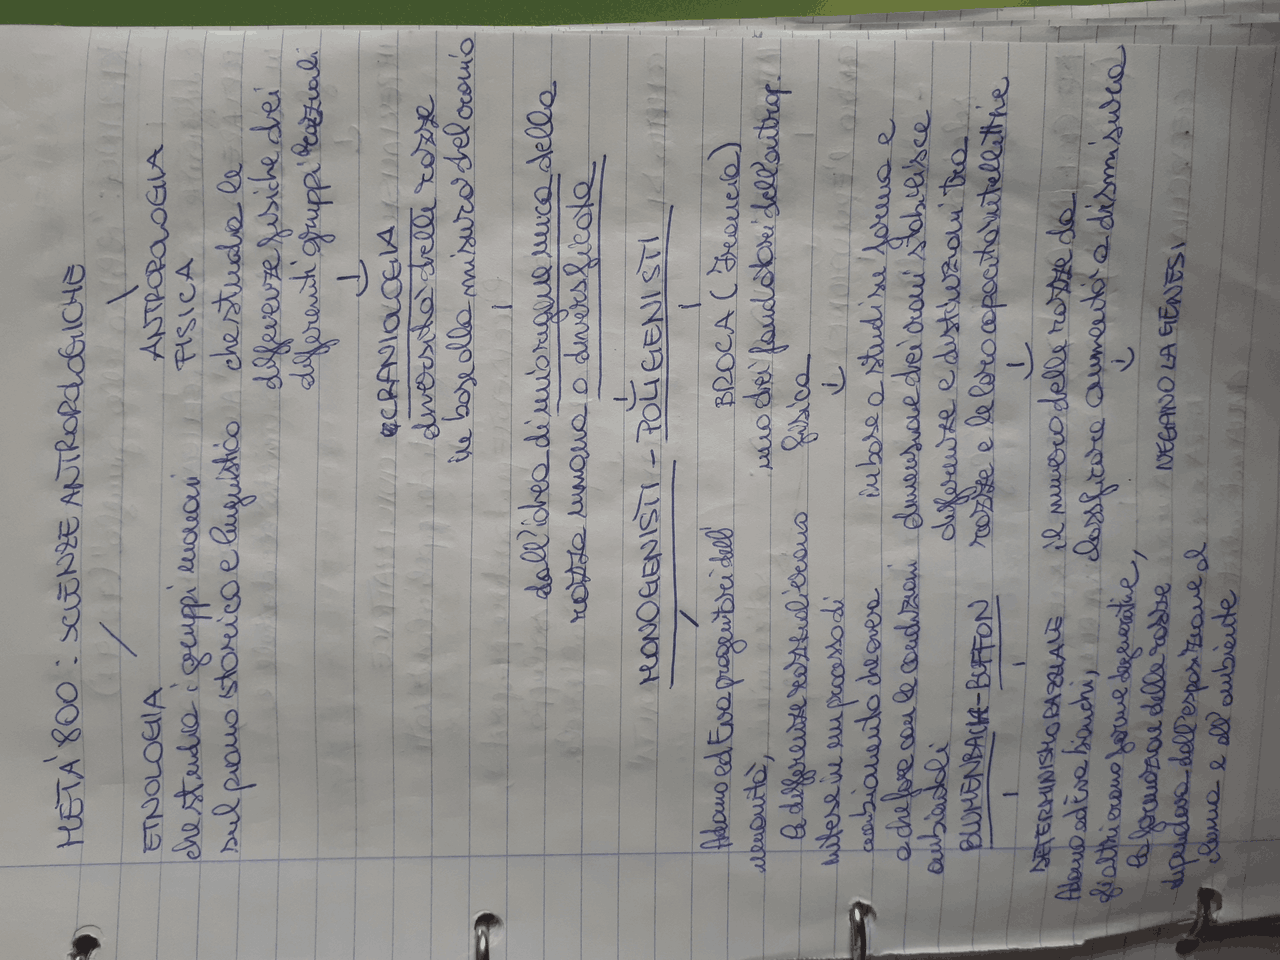 METÀ 800: SCIENZE ANTROPOLOGICHE
ETNOLOGIA
che studia i gruppi umani
sul piano storico e linguistico
ANTROPOLOGIA
FISICA
che studia le
differenze fisiche dei
differenti gruppi razziali
CRANIOLOGIA
diversità delle razze
in base alla misura del cranio
dall'idea di un'origine unica della
razza umana o diversificata
MONOGENISTI - POLIGENISTI
Adamo ed Eva progenitori dell'
umanità,
le differenze razziali erano
intese in un processo di
cambiamento che aveva
a che fare con le condizioni
ambientali
BLUMENBACH-BUFFON
DETERMINISMO RAZZIALE
Adamo ed Eva bianchi,
gli altri erano forme degenerative,
la formazione delle razze
dipendeva dall'esposizione al
clima e all'ambiente
BROCA (Francia)
uno dei fondatori dell'antrop.
fisica
in base a studi su forma e
dimensione dei crani stabilisce
differenze e distinzioni tra
razze e le loro capacità intellettive
il numero delle razze da
classificare aumentò a dismisura
NEGANO LA GENESI